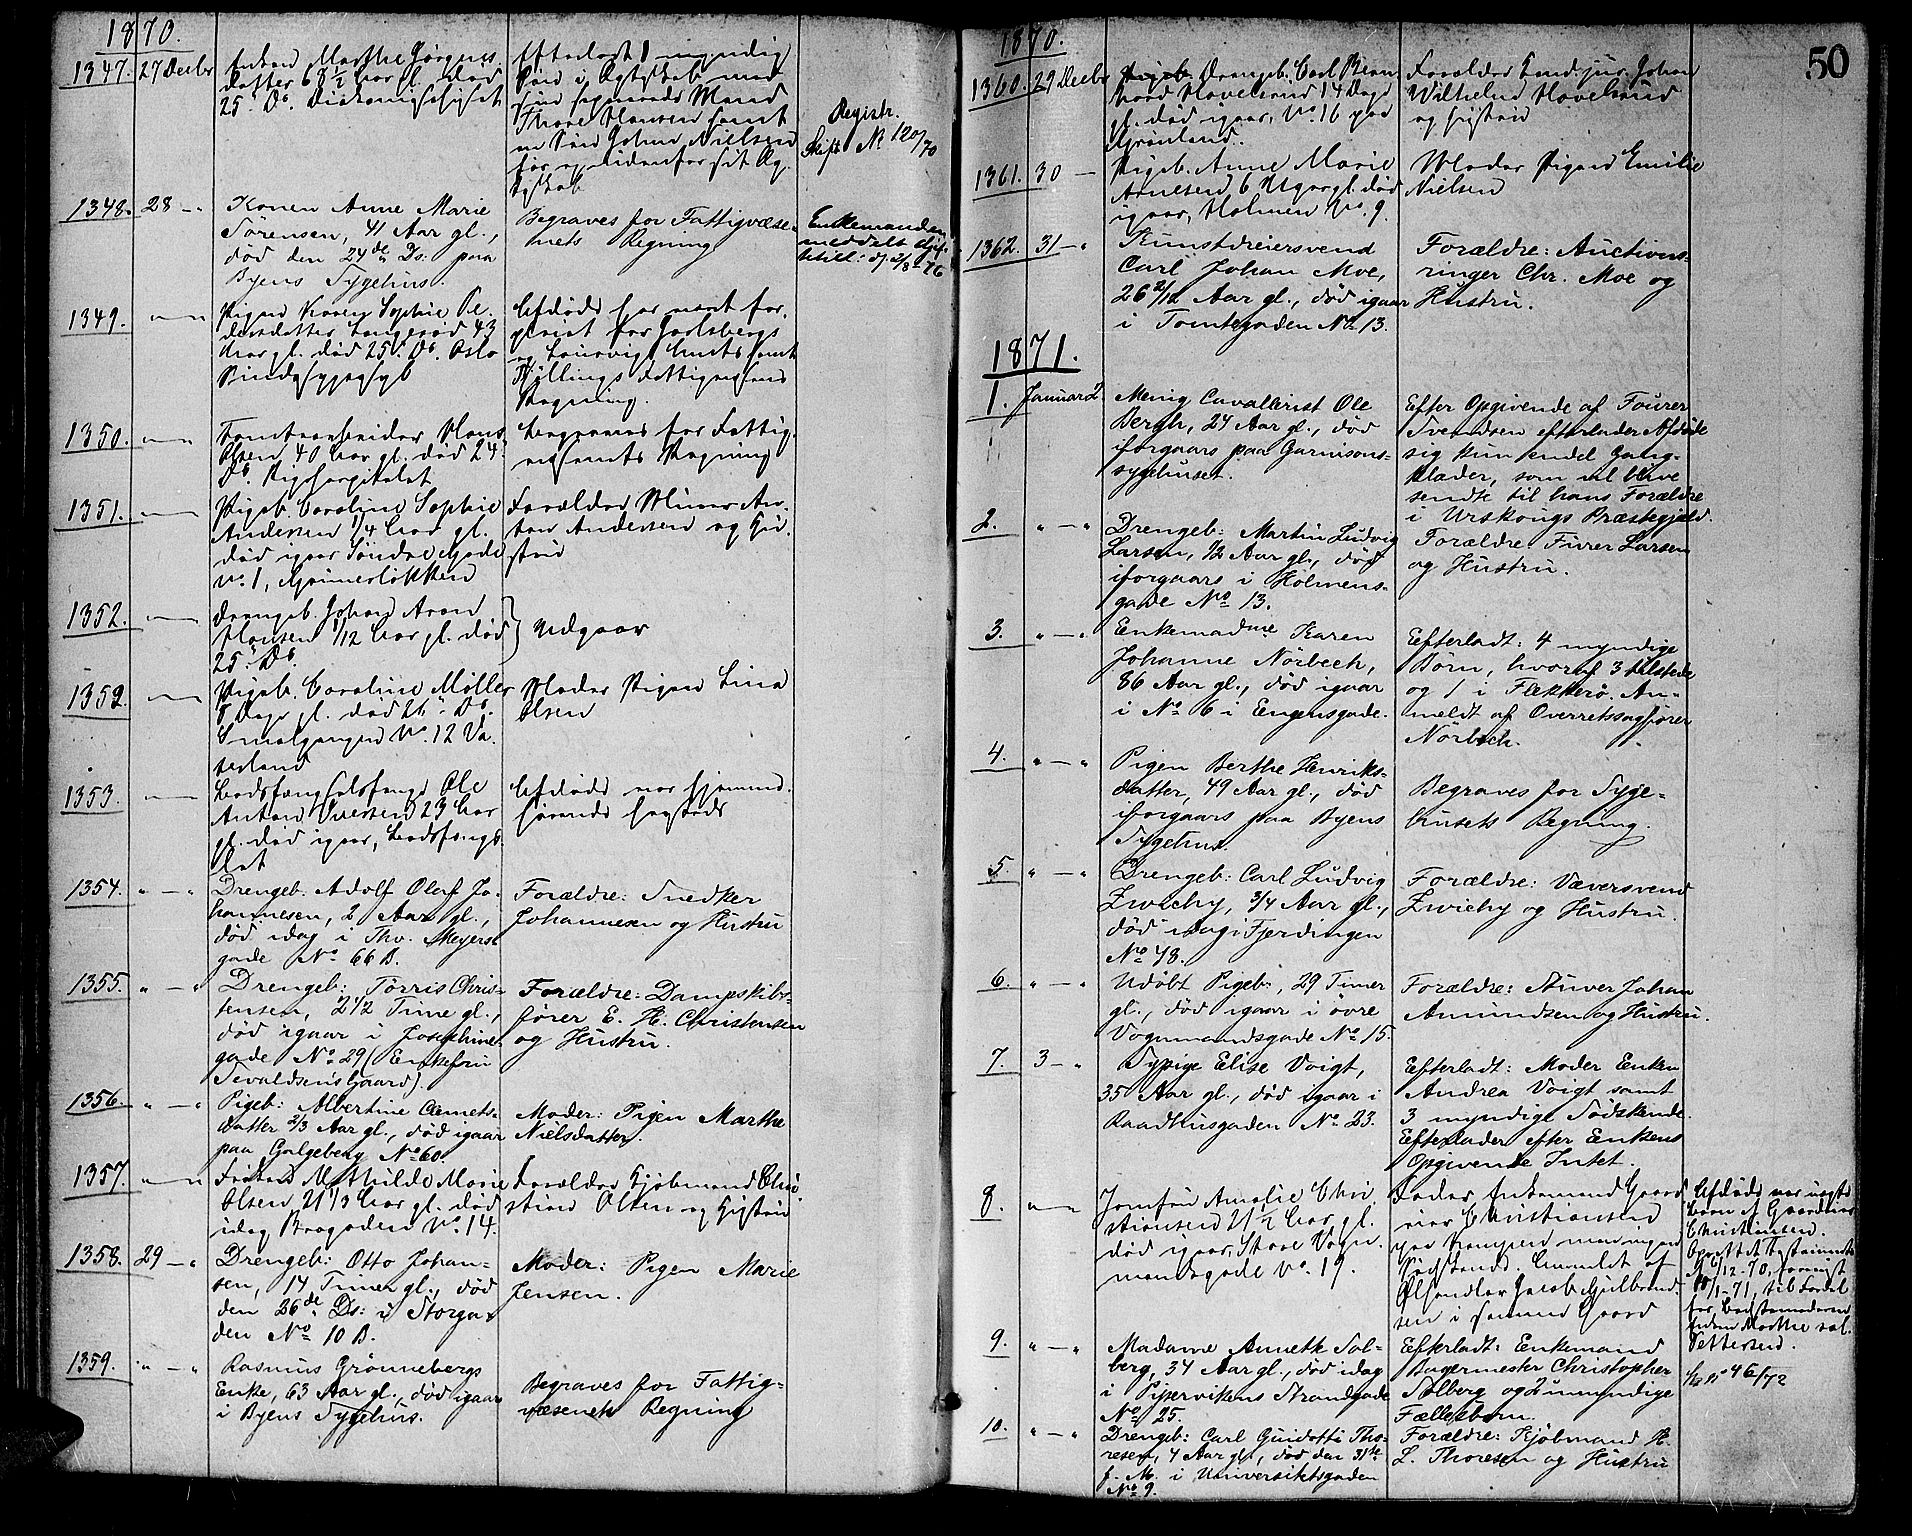 1870.
1347. 27 Decbr
Enken Marthe Jørgens
datter 68 1/2 Aar gl. død
25. Ds. Diakonissehuset
Efterladt 1 myndig
Søn i Ægteskab med
sin Mand
Thore Hansen samt
en Søn Johan Nielsen
før og udenfor sit Æg
teskab
Registr.
Skift. No 120/70
1348. 28 - "
Konen Anne Marie
Sørensen, 41 Aar gl.,
død den 24de Ds: paa
Byens Sygehus.
Begraves for Fattigvæse-
nets Regning
Enkemanden
meddelt
1349. " - "
Pigen Karen Sophie Pe-
dersdatter 43
Aar gl. død 25. Ds. Oslo
Sindssygeasyl
Afdøde har været for-
pleiet for Jarlsbergs
og Laurvigs Amts samt
Fattigvæsens
Regning.
1350. " - "
Tomtearbeider Hans
Olsen 40 Aar gl. død 24
Ds. Rigshospitalet
Begraves for Fattig-
væsenets Regning
1351. " - "
Pigeb. Caroline Sophie
Andersen 1/4 Aar gl.
død igaar Søndre Gade
No. 1, Grünerløkken
Forældre Murer An-
ton Andersen og Hu-
stru
1352. " - "
Drengeb. Johan Aron
Hansen 1/12 Aar gl. død
25. Ds.
Udgaar
1352. " - "
Pigeb. Caroline Møller
8 Dage gl. død 26. Ds.
Smalgangen No. 12 Va-
terland
Moder Pigen Lina
Olsen
1353. " - "
Bodsfængselsfange Ole
Anton Iversen 23 Aar
gl. død igaar, Bodsfængs-
let
Afdøde var hjemme-
hørende
1354. " - "
Drengeb: Adolf Olaf Jo-
hannesen, 2 Aar gl.,
død idag i Thv. Meyers
gade No 66 B.
Forældre: Snedker
Johannesen og Hustru
1355. " - "
Drengeb: Torris Chris-
tensen, 2 1/2 Time gl.,
død igaar i Josephine
gade No 29 (Enkefru
Sevaldsens Gaard).
Forældre: Dampskibs-
fører E. H. Christensen
og Hustru.
1356. " - "
Pigeb: Albertine
datter 2/3 Aar gl., død igaar
paa Galgeberg No 60.
Moder: Pigen Marthe
Nielsdatter.
1357. " - "
Frøken Mathilde Marie
Olsen 21 1/3 Aar gl. død
idag Brogaden No. 14.
Forældre Kjøbmand Chri
stian Olsen og Hustru
1358. 29 - "
Drengeb: Otto Johan-
sen, 14 Timer gl., død
den 26de Ds: i Storga-
den No 10 B.
Moder: Pigen Marie
Jensen.
1359. " - "
Rasmus Grønnebergs
Enke, 63 Aar gl., død igaar
i Byens Sygehus.
Begraves for Fattig-
væsenets Regning
50
1870.
1360. 29 Decbr
Drengeb. Carl Bern
hard Hovelsrud 14 Dage
gl. død igaar, No. 16 paa
Grønland.
Forældre Cand. jur. Johan
Wilhelm Hovelsrud
og Hustru
1361. 30 -
Pigeb. Anne Marie
Arnesen 6 Uger gl. død
igaar, Holmen No. 9.
Moder Pigen Emilie
Nielsen
1362. 31 - "
Kunstdreiersvend
Carl Johan Moe,
26 2/12 Aar gl., død igaar
i Tomtegaden No 13.
Forældre: Auctions-
ringer Chr. Moe og
Hustru.
1871.
1. Januar 2.
Menig Cavallerist Ole
Bergh, 24 Aar gl., død
iforgaars paa Garnisons-
sygehuset.
Efter Opgivende af Fourer
Svendsen efterlader Afdøde
sig kun endel Gang-
klæder, som vil blive
sendte til hans Forældre
i Urskougs Præstegjæld.
2. " - "
Drengeb: Martin Ludvig
Larsen, 1/2 Aar gl., død
iforgaars i Holmens-
gade No 13.
Forældre: Furer Larsen
og Hustru.
3. " - "
Enkemadme Karen
Johanne Nørbech,
86 Aar gl., død igaar
i No 6 i Engensgade.
Efterladt: 4 myndige
Børn, hvoraf 3 tilstede
og 1 i Flekkerø. An-
meldt af Overretssagfører
Nørbech.
4. " - "
Pigen Berthe Henriks-
datter, 49 Aar gl., død
iforgaars paa Byens
Sygehus.
Begraves for Syge-
husets Regning.
5. " - "
Drengeb: Carl Ludvig
Zwichy, 3/4 Aar gl.,
død idag i Fjerdingen
No 48.
Forældre: Væversvend
Zwichy og Hustru.
6. " - "
Udøbt Pigeb:, 29 Timer
gl., død igaar i øvre
Vognmandsgade No 15.
Forældre: Stuver Johan
Amundsen og Hustru.
7. 3 - "
Sypige Elise Voigt,
35 Aar gl., død igaar i
Raadhusgaden No 23.
Efterladt: Moder Enken
Andrea Voigt samt
3 myndige Sødskende.
Efterlader efter Enkens
Opgivende Intet.
8. " - "
Jomfru Amalie Chri
stiansen 21 1/2 Aar gl.
død igaar, Store Vogn-
mandsgade No. 19.
Fader Enkemand Gaard
eier Christiansen
paa Kampen
Anmeldt af
Ølhandler Jacob Gulbrand-
sen i samme Gaard
Afdøde var uægte
Barn af Gaardeier
Christiansen.
Oprettet Testamente
6/12-70,
10/1-71, til Fordel
for Bestemoderen
Enken Marthe
Pettersen.
No 46/72
9. " - "
Madame Annette Sol-
berg, 34 Aar gl., død idag
i Pipervikens Strandgade
No 25.
Efterladt: Enkemand
Bagermester Christopher
Solberg og 2 umyndige
Fællesbørn.
10. " - "
Drengeb: Carl Guidotti Tho-
resen, 4 Aar gl., død den 31te
f. M. i Universitetsgaden
No 9.
Forældre: Kjøbmand H.
L. Thoresen og Hustru